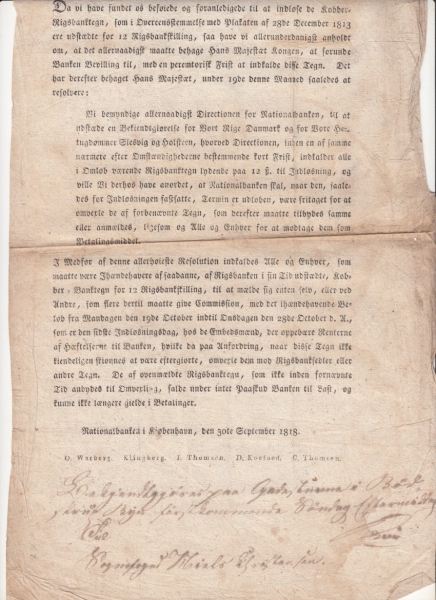 Da vi have fundet os beføiede og foranledigede til at indløse de Kobber-
Rigsbanktegn, som i Overeensstemmelse med Plakaten af 28de December 1813
ere udstædte for 12 Rigsbankskilling, saa have vi allerunderdanigst anholdt
om, at det allernaadigst maatte behage Hans Majestæt Kongen, at forunde
Banken Bevilling til, med en peremtorisk Frist at indkalde disse Tegn. Det
har derefter behaget Hans Majestæt, under 19de denne Maaned saaledes at
resolvere:
Vi bemyndige allernaadigst Directionen for Nationalbanken, til at
udstæde en Bekiendtgiørelse for Vort Rige Danmark og for Vore Her-
tugdommer Slesvig og Holsteen, hvorved Directionen, inden en af samme
nærmere efter Omstændighederne bestemmende kort Frist, indkalder alle
i Omløb værende Rigsbanktegn lydende paa 12 ß. til Indløsning, og
ville Vi derhos have anordet, at Nationalbanken skal, naar den, saale-
des for Indløsningen fastsatte, Termin er udløben, være fritaget for at
omvexle de af forbenævnte Tegn, som derefter maatte tilbydes samme
eller anmeldes, ligesom og Alle og Enhver for at modtage dem som
Betalingsmiddel.
I Medfør af denne allerhøieste Resolution indkaldes Alle og Enhver, som
maatte være Ihændehavere af saadanne, af Rigsbanken i sin Tid udstædte, Kob-
ber-Banktegn for 12 Rigsbankskilling, til at melde sig enten selv, eller ved
Andre, som flere dertil maatte give Commission, med det ihændehavende Be-
løb fra Mandagen den 19de October indtil Onsdagen den 28de October d. A.,
som er den sidste Indløsningsdag, hos de Embedsmænd, der oppebære Renterne
af Hæftelserne til Banken, hvilke da paa Anfordring, naar disse Tegn ikke
kiendeligen skiønnes at være eftergiorte, omvexle dem mod Rigsbanksedler eller
andre Tegn. De af ovenmeldte Rigsbanktegn, som ikke inden fornævnte
Tid anbydes til Omvexling, falde under intet Paaskud Banken til Last, og
kunne ikke længere gielde i Betalinger.
Nationalbanken i Kiøbenhavn, den 30te September 1818.
O. Warberg. Klingberg. I. Thomsen. D. Kostaed. C. Thomsen.
Bekjendtgjøres paa Gadestævne i
førstkommende Søndag Eftermiddag
Sognefoged Niels Christensen.